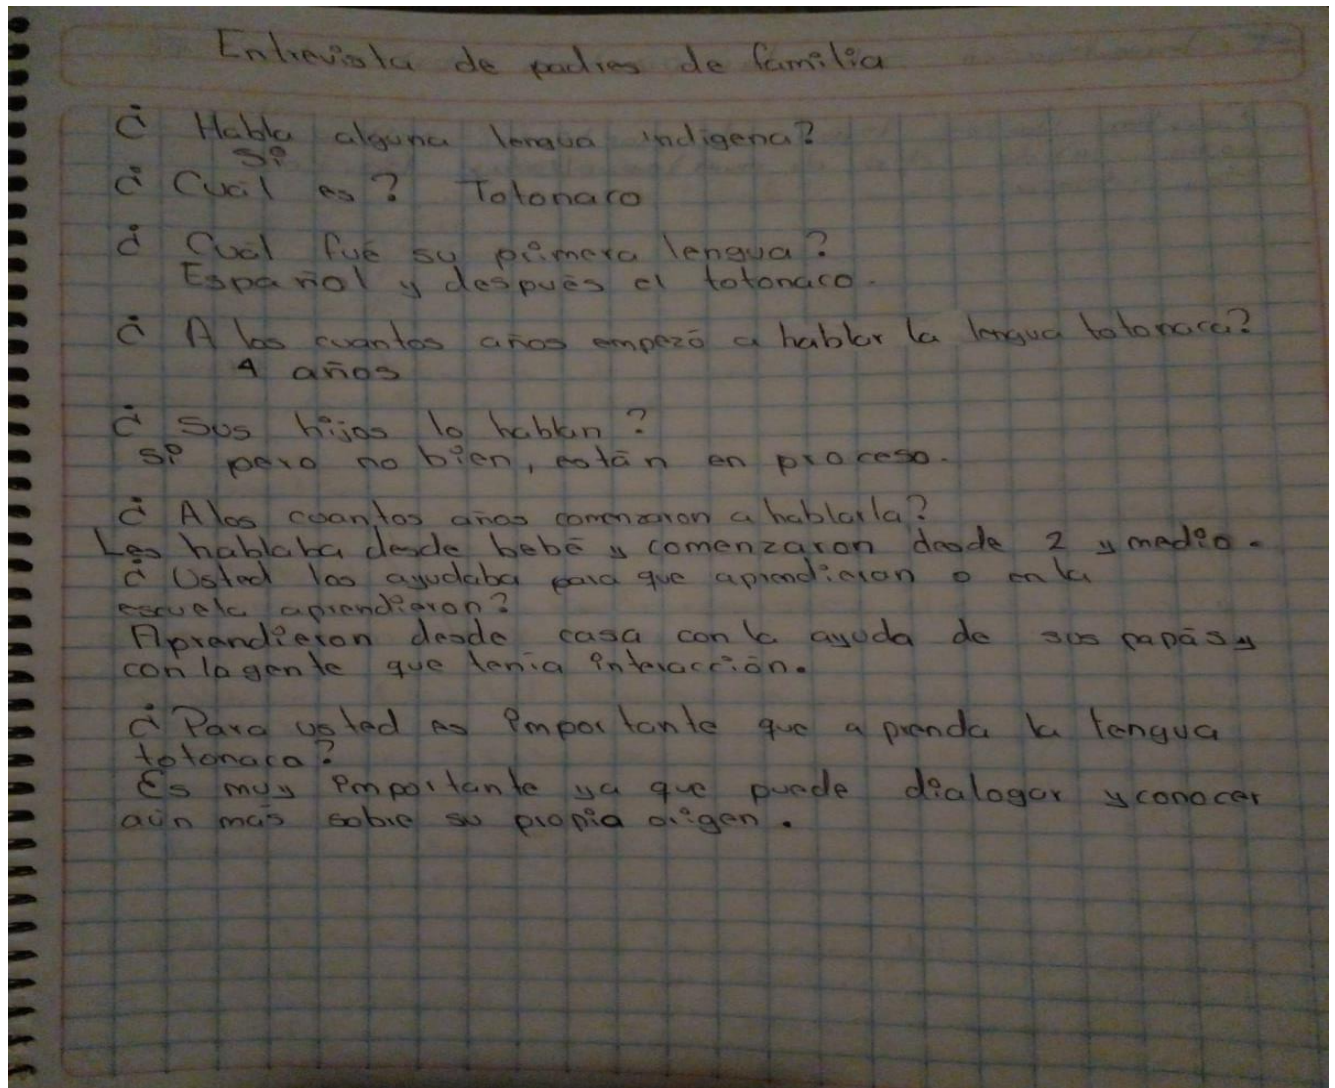 Entrevista de padres de familia
¿ Habla alguna lengua indigena?
Si
¿ Cuál es? Totonaco
¿ Cuál fué su primera lengua?
Español y después el totonaco.
¿ A los cuantos años empezó a hablar la lengua totonaca?
4 años
¿ Sus hijos lo hablan?
Si pero no bien, están en proceso.
¿ A los cuantos años comenzaron a hablarla?
Les hablaba desde bebé y comenzaron desde 2 y medio.
¿ Usted los ayudaba para que aprendieran o en la
escuela aprendieron?
Aprendieron desde casa con la ayuda de sus papás y
con la gente que tenía interacción.
¿ Para usted es importante que aprenda la lengua
totonaca?
Es muy importante ya que puede dialogar y conocer
aún más sobre su propia origen.